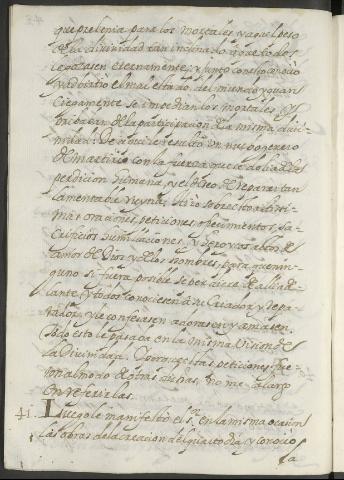 que prebenia para los mortales, y aquel peso
de la divinidad tan inclinado a que todos
le goçasen eternamente; y junto con esto conocio
y advirtio el mal estado del mundo, y quan
ciegamente se impedian los mortales, y
pribaban de la participacion de la misma divi
nidad. De aqui le resulto un nuebo genero
de martirio con la fuerça que le dolia de la
perdicion humana, y el deseo de reparar tan
lamentable ruyna. Hiço sobre esto altissi
mas oraciones, peticiones, ofrecimientos, sa
crificios, humillaciones, y heroycos actos de
amor de Dios y de los hombres, para que nin
guno si fuera posible se perdiese de alli ade
lante, y todos conociesen a su Criador y Repa
rador, y le confesasen adorasen y amasen.
Todo esto le pasaba en la misma vision de
la Divinidad. Y porque estas peticiones fue
ron al modo de otras dichas no me alargo
en referirlas.
41. Luego le manifesto el Sr. en la misma ocasion
las obras de la creacion del quinto dia, y conocio
la